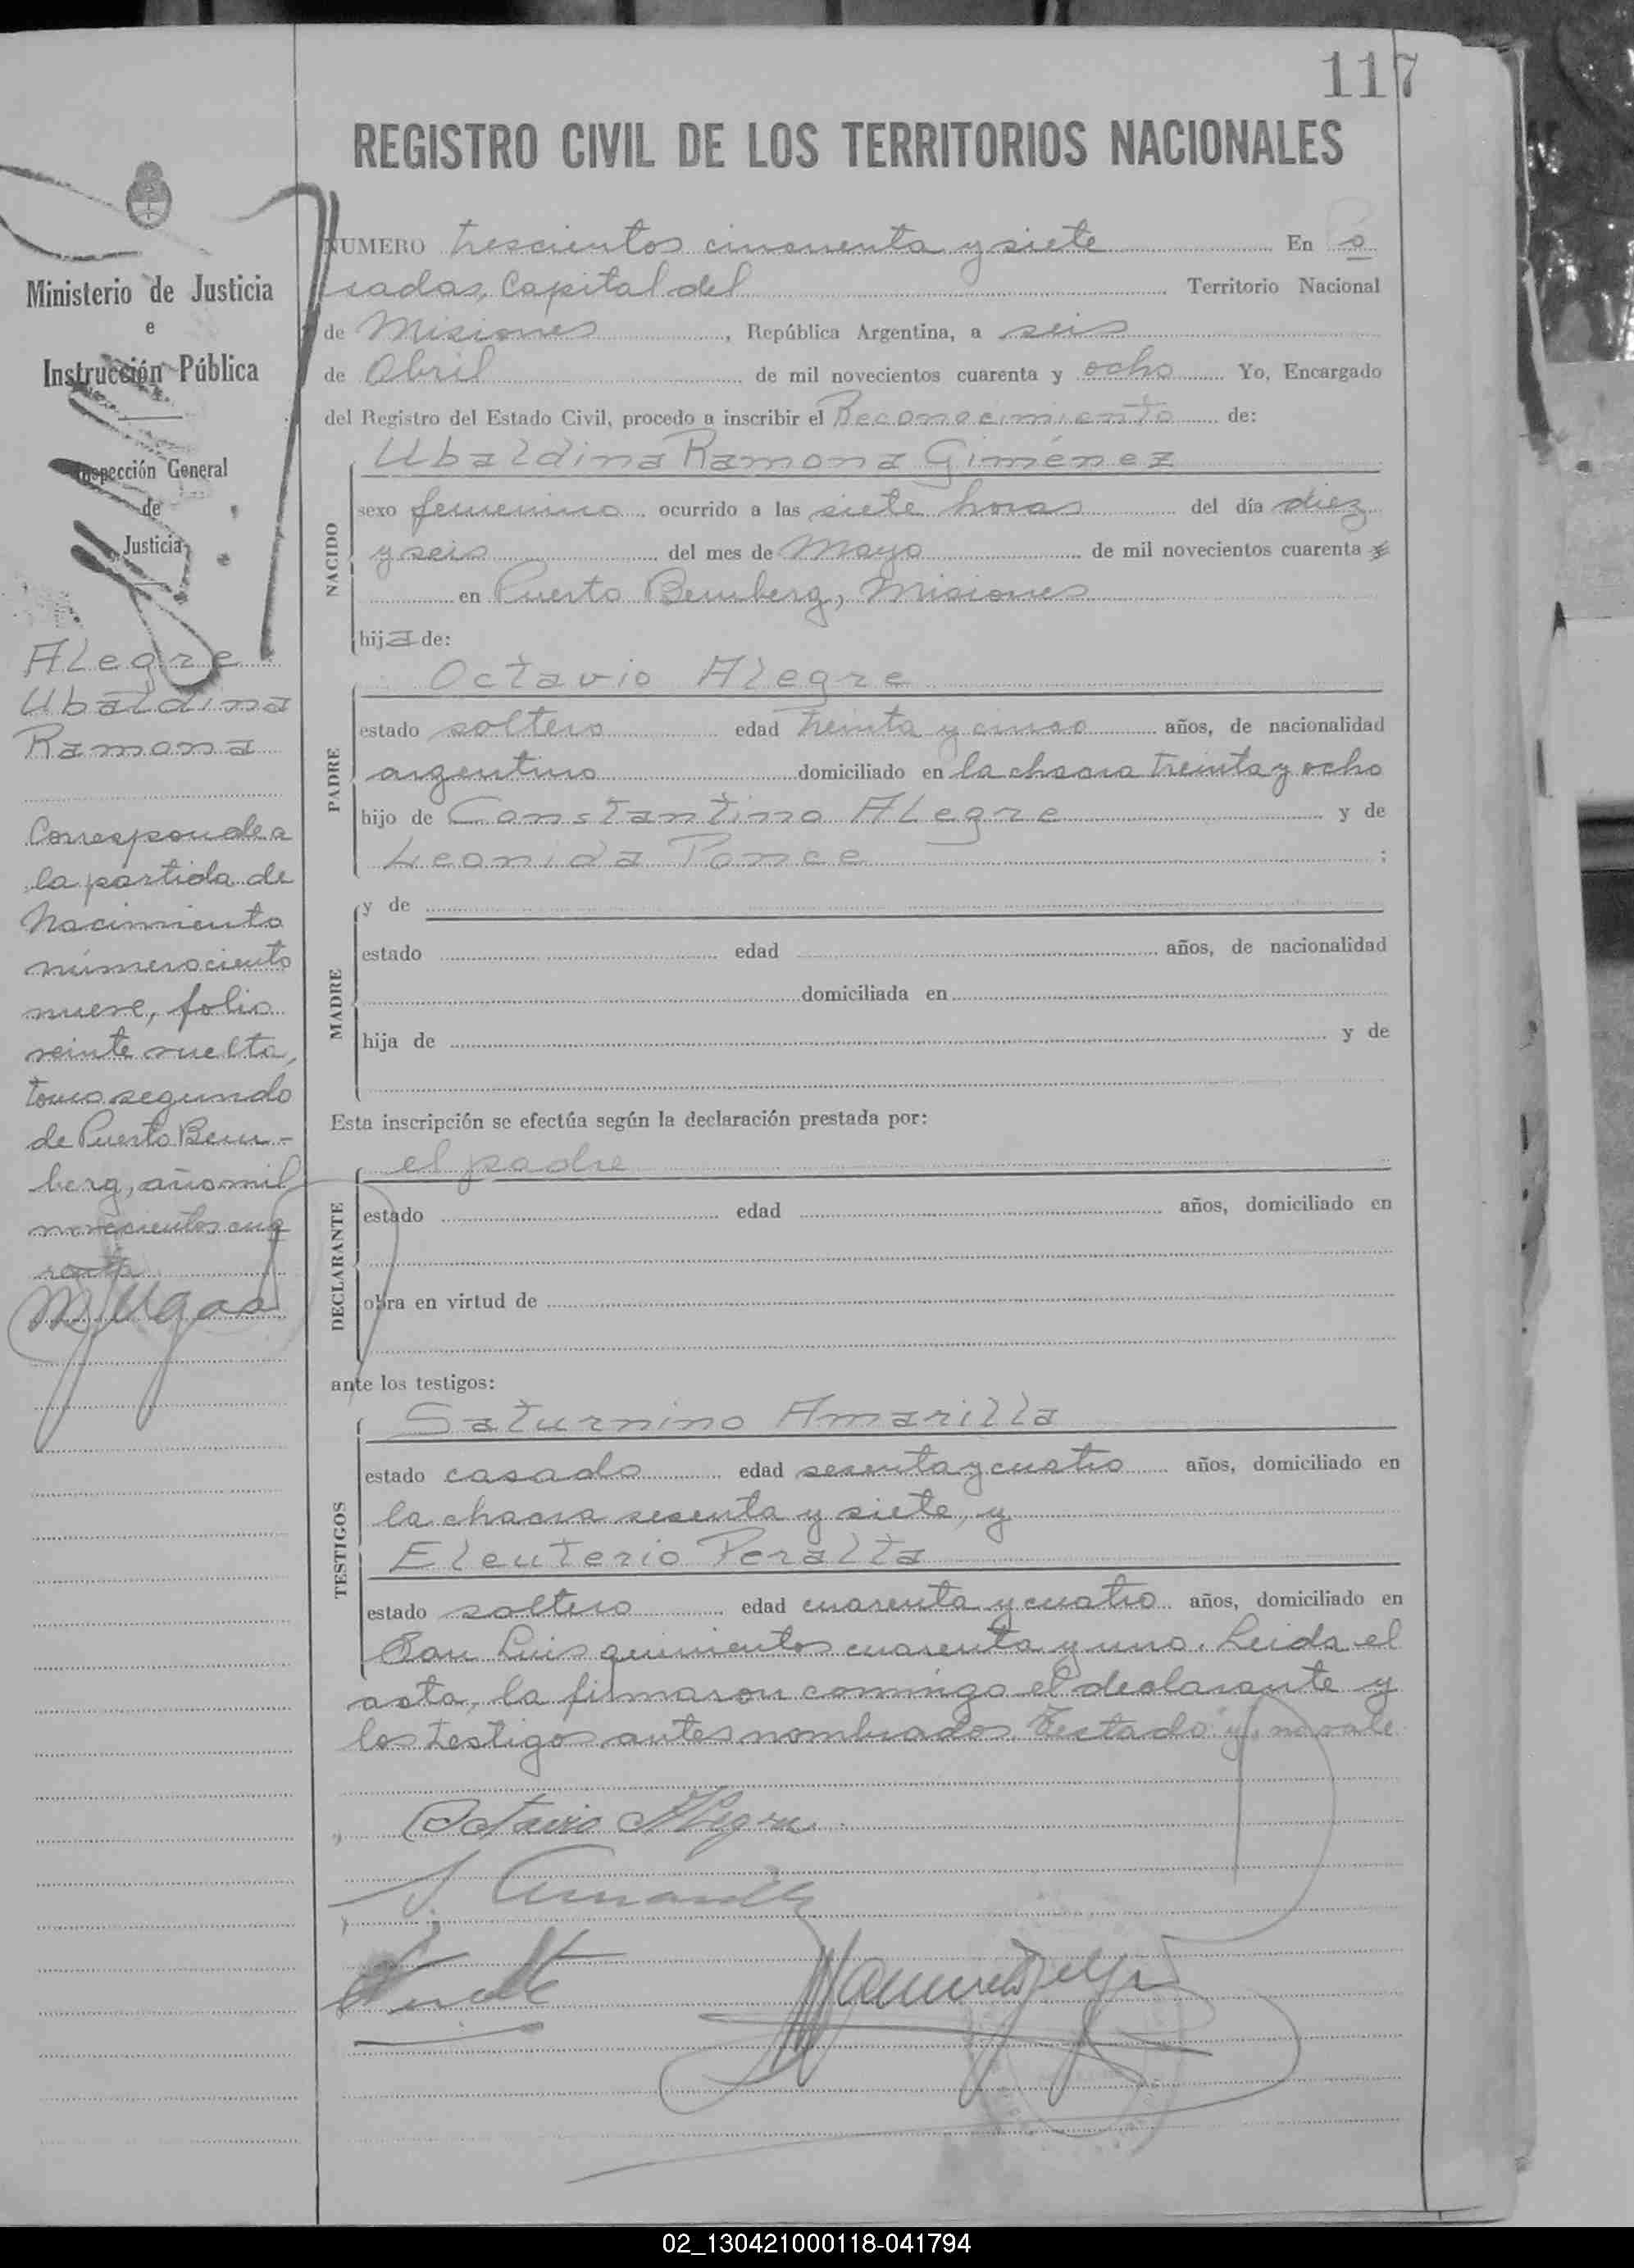 117
REGISTRO CIVIL DE LOS TERRITORIOS NACIONALES
Ministerio de Justicia
e
Instrucción Pública
Inspección General
de
Justicia
Alegre
Ubaldina
Ramona
Corresponde a
la partida de
Nacimiento
número ciento
nueve, folio
veinte vuelta,
tomo segundo
de Puerto Bem-
berg, año mil
novecientos cua
renta
NUMERO trescientos cincuenta y siete En Po
sadas, Capital del Territorio Nacional
de Misiones, República Argentina, a seis
de Abril de mil novecientos cuarenta y ocho Yo, Encargado
del Registro del Estado Civil, procedo a inscribir el Reconocimiento de:
Ubaldina Ramona Giménez
NACIDO
sexo femenino ocurrido a las siete horas del día diez
y seis del mes de Mayo de mil novecientos cuarenta y
en Puerto Bemberg, Misiones
hija de:
Octavio Alegre
PADRE
estado soltero edad treinta y cinco años, de nacionalidad
argentino domiciliado en la chacra treinta y ocho
hijo de Constantino Alegre y de
Leonida Ponce ;
MADRE
y de
estado edad años, de nacionalidad
domiciliada en
hija de y de
Esta inscripción se efectúa según la declaración prestada por:
el padre
DECLARANTE
estado edad años, domiciliado en
obra en virtud de
ante los testigos:
Saturnino Amarilla
TESTIGOS
estado casado edad sesenta y cuatro años, domiciliado en
la chacra sesenta y siete, y
Eleuterio Peralta
estado soltero edad cuarenta y cuatro años, domiciliado en
San Luis quinientos cuarenta y uno. Leida el
acta, la firmaron conmigo el declarante y
los testigos antes nombrados. Testado "y" no vale
Octavio Alegre
S. Amarilla
02_130421000118-041794